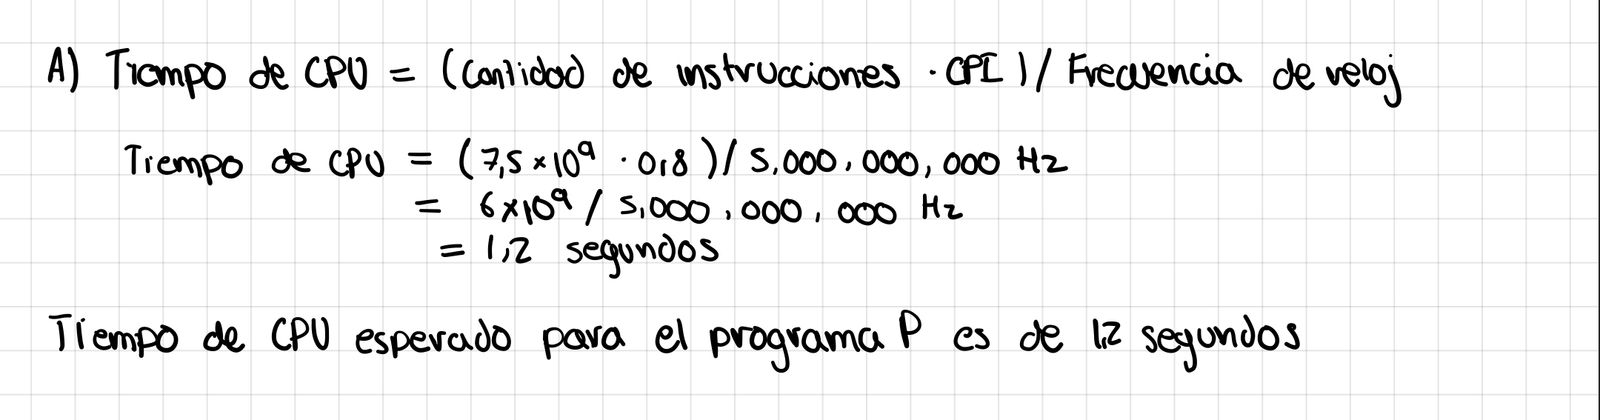 A) Tiempo de CPU = (Cantidad de instrucciones · CPI) / Frecuencia de reloj
Tiempo de CPU = (7,5×10⁹ · 0,8) / 5,000,000,000 Hz
= 6×10⁹ / 5,000,000,000 Hz
= 1,2 segundos
Tiempo de CPU esperado para el programa P es de 1,2 segundos